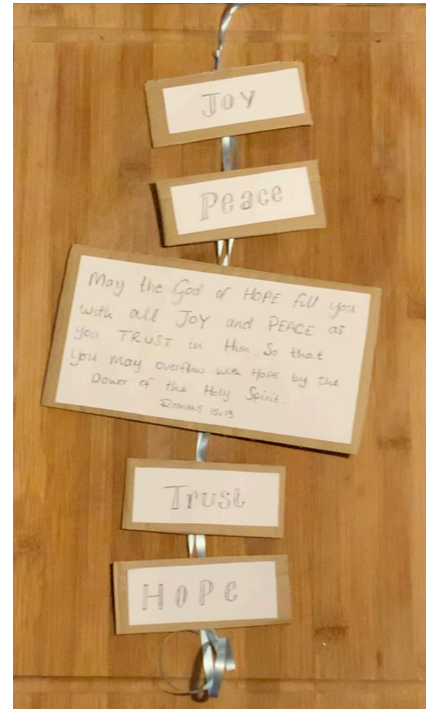 Joy
Peace
May the God of HOPE fill you
with all JOY and PEACE as
you TRUST in Him. So that
you may overflow with HOPE by the
Power of the Holy Spirit.
Romans 15:13
Trust
HOPe